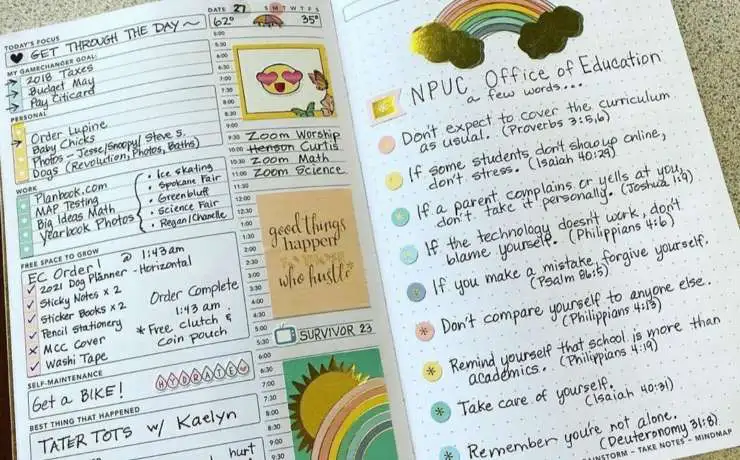 DATE 27 S M T W T F S
62° 35°
TODAY'S FOCUS
GET THROUGH THE DAY ~
MY GAMECHANGER GOAL:
2018 Taxes
Budget May
Pay Citicard
PERSONAL
Order Lupine
Baby Chicks
Photos - Jesse/Snoopy/Steve S.
Dogs (Revolution, Photos, Baths)
WORK
Planbook.com
MAP Testing
Big Ideas Math
Yearbook Photos
• Ice skating
• Spokane Fair
• Greenbluff
• Science Fair
• Regan/Chanelle
FREE SPACE TO GROW
EC Order! @ 1:43am
2021 Dog Planner - Horizontal
Sticky Notes x 2
Sticker Books x 2
Pencil Stationery
MCC Cover
Washi Tape
Order Complete
1:43 am
* Free Clutch &
Coin pouch
SELF-MAINTENANCE
HYDRATE
Get a BIKE!
BEST THING THAT HAPPENED
TATER TOTS w/ Kaelyn
hurt
5:00
6:00
6:30
7:00
7:30
8:00
8:30
9:00
9:30 Zoom Worship
10:00 Henson Curtis
10:30 Zoom Math
11:00 Zoom Science
11:30
12:00
12:30
1:00
1:30
2:00
2:30
3:00
3:30
4:00
4:30
good things
happen
to those
who hustle
5:00
5:30
SURVIVOR 23
6:00
6:30
7:00
7:30
8:00
8:30
9:00
NPUC Office of Education
a few words...
Don't expect to cover the curriculum
as usual. (Proverbs 3:5,6)
If some students don't show up online,
don't stress. (Isaiah 40:29)
If a parent complains or yells at you,
don't take it personally. (Joshua 1:9)
If the technology doesn't work, don't
blame yourself. (Philippians 4:6)
If you make a mistake, forgive yourself.
(Psalm 86:5)
Don't compare yourself to anyone else..
(Philippians 4:13)
Remind yourself that school is more than
academics. (Philippians 4:19)
Take care of yourself.
(Isaiah 40:31)
Remember you're not alone.
(Deuteronomy 31:8)
BRAINSTORM - TAKE NOTES - MINDMAP